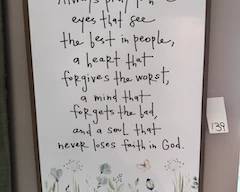 Always pray
eyes that see
the best in people,
a heart that
forgives the worst,
a mind that
forgets the bad,
and a soul that
never loses faith in God.
139